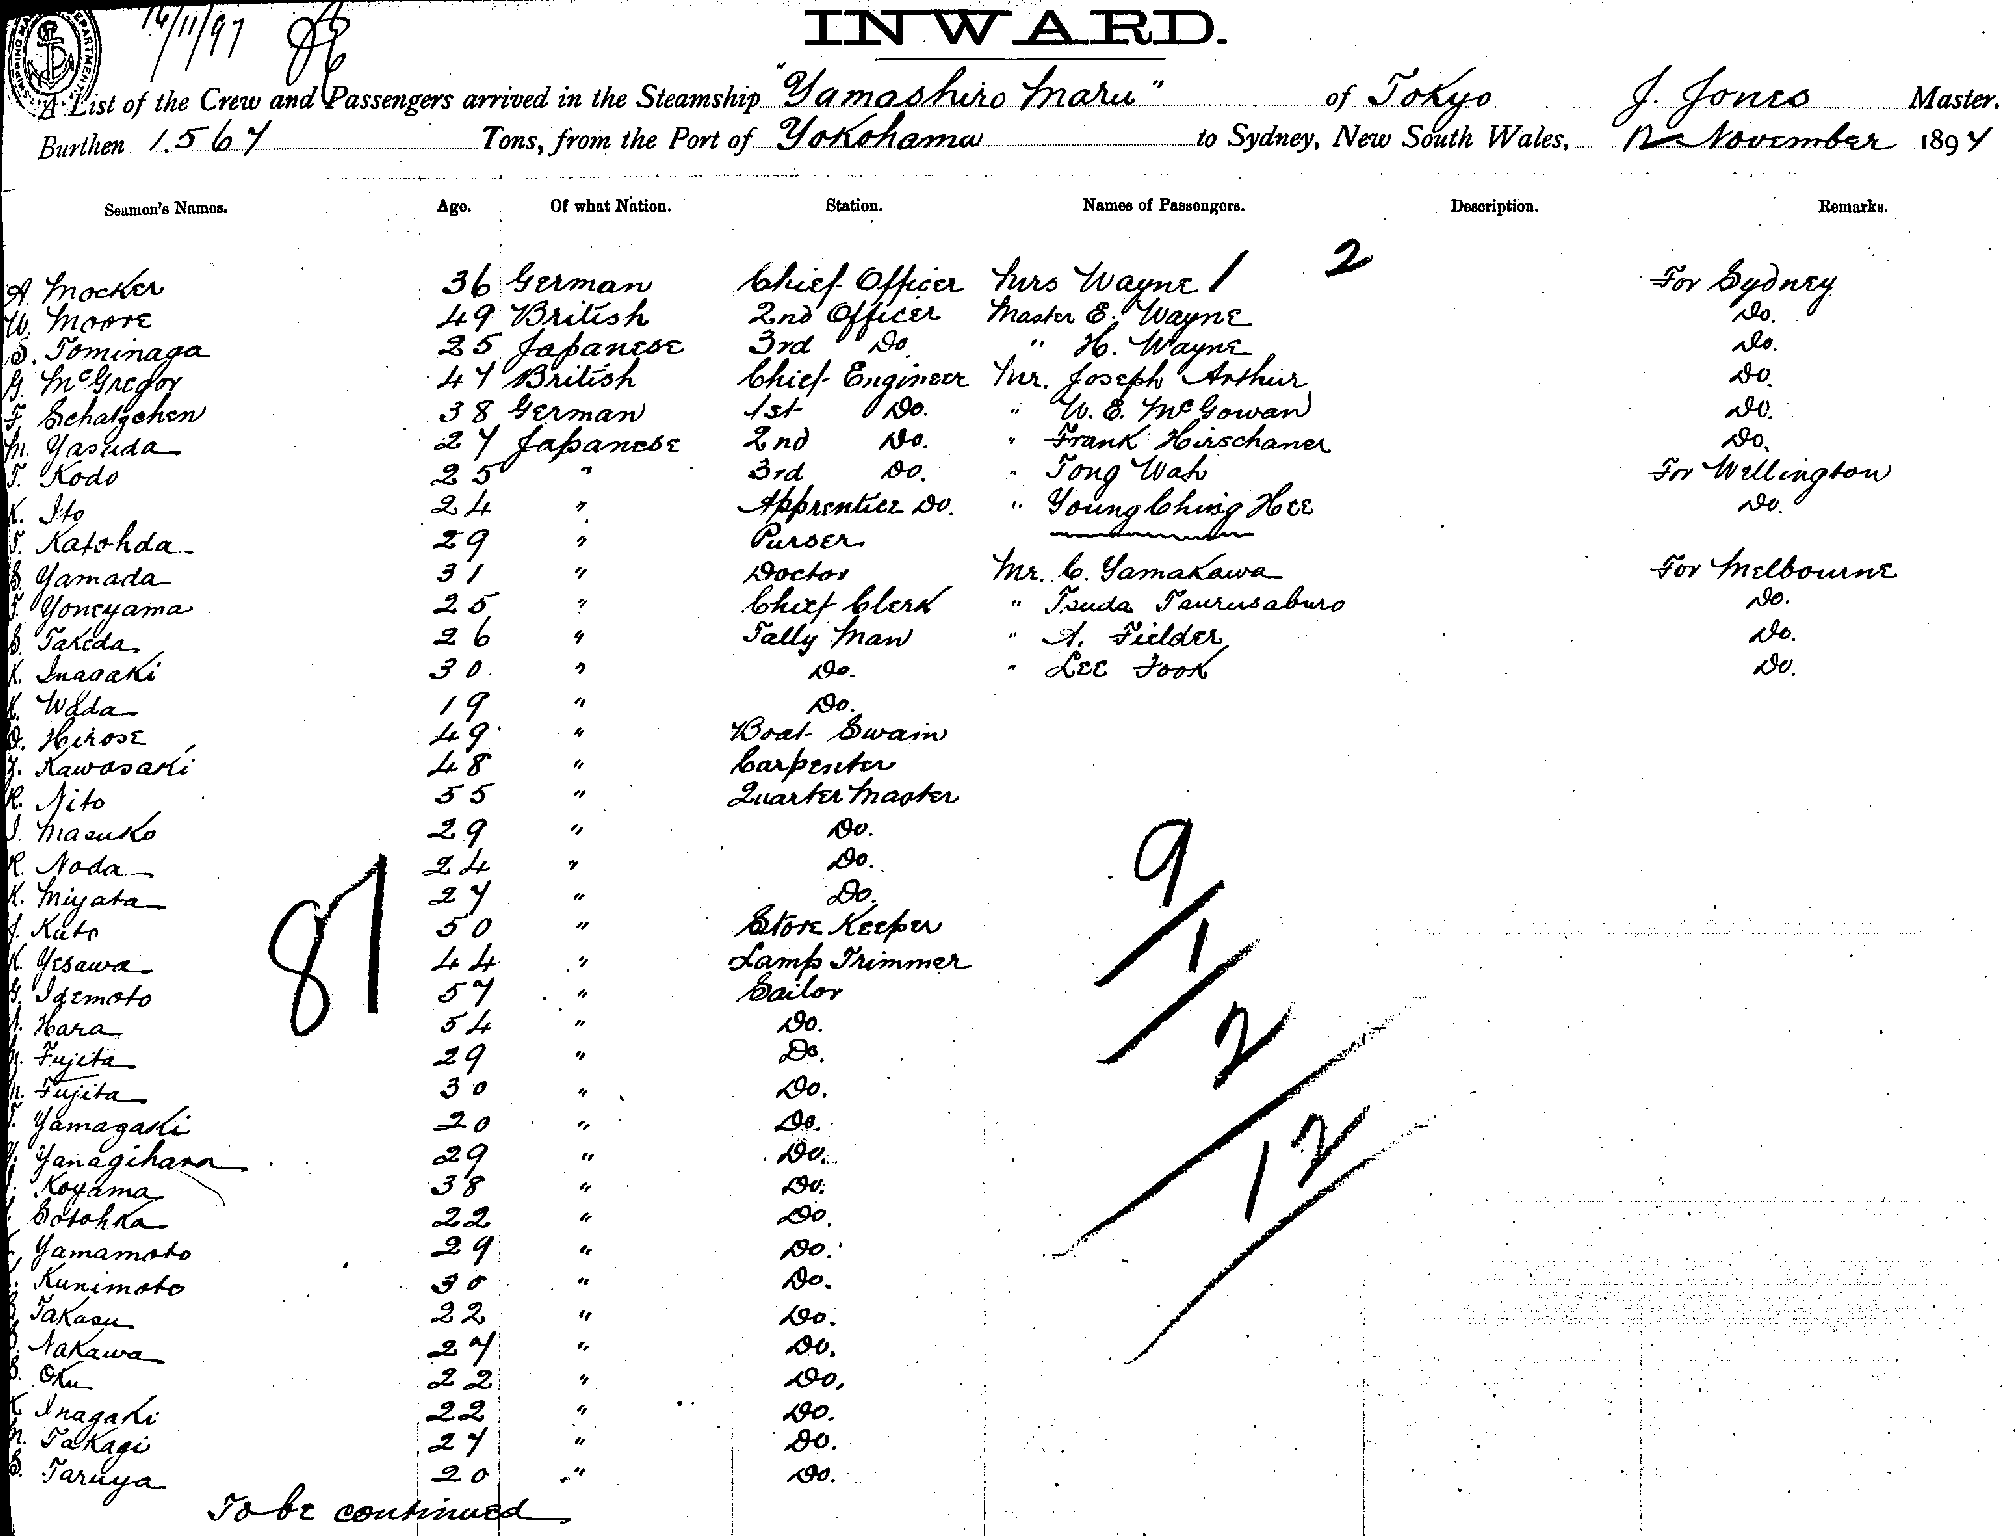 16/11/97
INWARD.
A List of the Crew and Passengers arrived in the Steamship "Yamashiro Maru" of Tokyo J. Jones Master.
Burthen 1.567 Tons, from the Port of Yokohama to Sydney, New South Wales, 12 November 1897
Seamen's Names. Age. Of what Nation. Station. Names of Passengers. Description. Remarks.
2
A. Mocker 36 German Chief Officer Mrs Wayne 1 For Sydney
W. Moore 49 British 2nd Officer Master E. Wayne Do.
S. Tominaga 25 Japanese 3rd Do " H. Wayne Do.
G. McGregor 47 British Chief Engineer Mr. Joseph Arthur Do.
F. Schatzchen 38 German 1st Do. " W. E. McGowan Do.
M. Yasuda 27 Japanese 2nd Do. " Frank Hirschaner Do.
T. Kodo 25 " 3rd Do. " Tong Wah For Wellington
K. Ito 24 " Apprentice Do. " Young Ching Hee Do.
T. Katohda 29 " Purser
S. Yamada 31 " Doctor Mr. C. Yamakawa For Melbourne
T. Yoneyama 25 " Chief Clerk " Tsuda Tsurusaburo Do.
S. Takeda 26 " Tally Man " A. Fielder Do.
K. Inagaki 30 " Do. " Lee Fook Do.
K. Wada 19 " Do.
Hirose 49 " Boat Swain
Kawasaki 48 " Carpenter
R. Nito 55 " Quarter Master
I. Masuko 29 " Do.
R. Noda 24 " Do.
K. Miyata 27 " Do.
Kato 50 " Store Keeper
K. Yesawa 44 " Lamp Trimmer
Igemoto 57 " Sailor
Hara 54 " Do.
Fujita 29 " Do.
Fujita 30 " Do.
T. Yamagaki 20 " Do.
Yanagihara 29 " Do.
Koyama 38 " Do.
Sotohka 22 " Do.
Yamamoto 29 " Do.
Kunimoto 30 " Do.
Takasu 22 " Do.
Nakawa 27 " Do.
S. Oku 22 " Do.
K. Inagaki 22 " Do.
M. Takagi 27 " Do.
S. Taruya 20 " Do.
To be continued
87
9
1
2
12